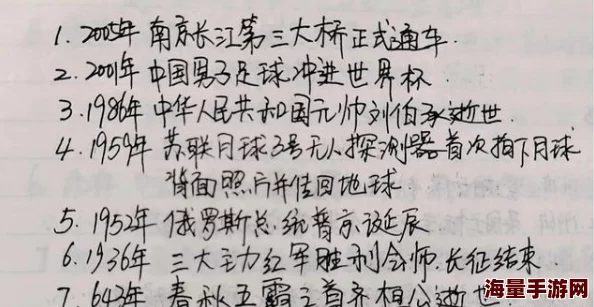 1. 2005年 南京长江第三大桥正式通车.
2. 2001年 中国男子足球冲进世界杯
3. 1986年 中华人民共和国元帅刘伯承逝世.
4. 1959年 苏联月球3号无人探测器首次拍下月球
背面照片并传回地球
5. 1952年 俄罗斯总统普京诞辰
6. 1936年 三大主力红军胜利会师.长征结束
7. 643年 春秋五霸之首齐桓公逝世
海量手游网